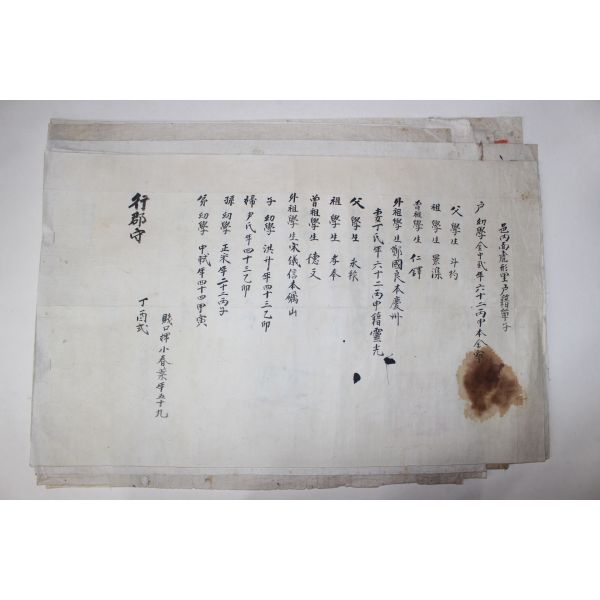 邑內面虎形里戶籍單子
戶 幼學金中 年六十二丙申本金
父 學生 斗
祖 學生 景
曾祖學生 仁鐸
外祖學生鄭國良本慶州
妻丁氏年六十二丙申籍靈光
父 學生 永
祖 學生 孝奉
曾祖學生 德文
外祖學生宋儀信本礪山
子 幼學 洪 年四十三乙卯
婦尹氏年四十三乙卯
孫幼學 正采年二十二丙子
弟 幼學 中軾年四十四甲寅
賤口婢小春葉年五十九
丁酉式
行郡守